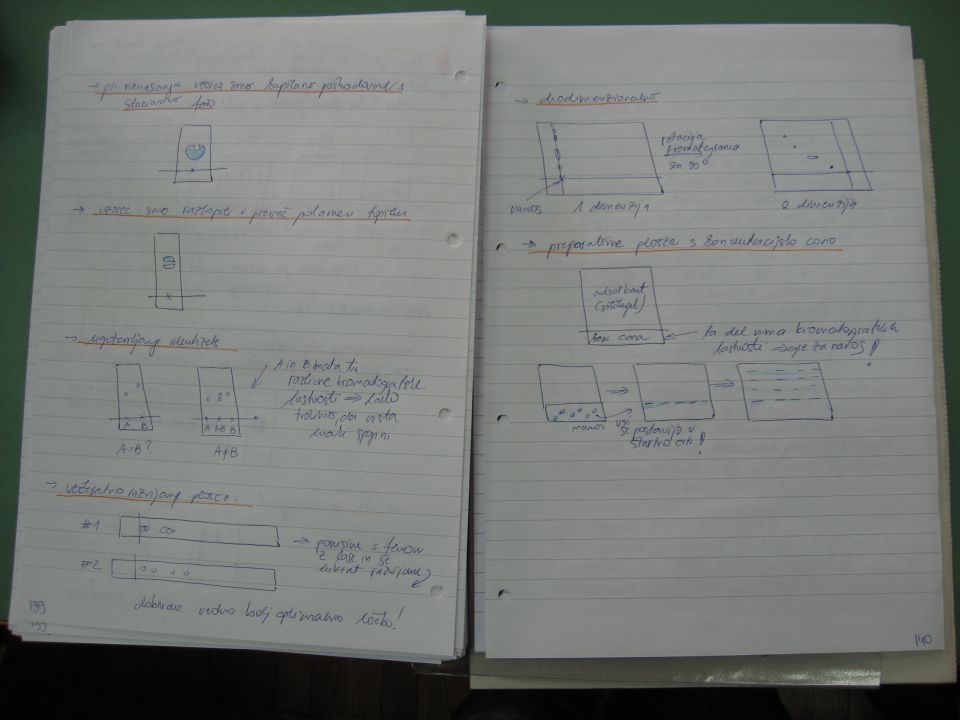 → pri nanašanju vzorca smo kapilaro poškodovali s
stacionarno fazo:
x
→ vzorec smo raztopili v preveč polarnem topilu
x
→ ugotavljanje identitete
A B
A=B?
A AB B
A≠B
A in B imata tu
različne kromatografske
lastnosti ⇒ lahko
trdimo, da nista
enaki spojini
→ večkratno razvijanje plošče:
#1
#2
→ posušimo s fenom
za lase in še
enkrat razvijemo
dobivamo vedno bolj optimalno ločbo!
139
→ dvodimenzionalno
nanos
1. dimenzija
rotacija
kromatograma
za 90°
2. dimenzija
→ preparativne plošče s koncentracijsko cono
adsorbent
(silikagel)
konc. cona
ta del nima kromatografskih
lastnosti → gre za nanos!
nanos
vsi
se postavijo v
startno črto!
140